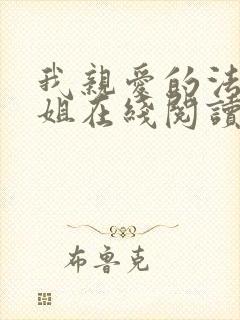 我親愛的法
姐在綫閱讀
布魯克